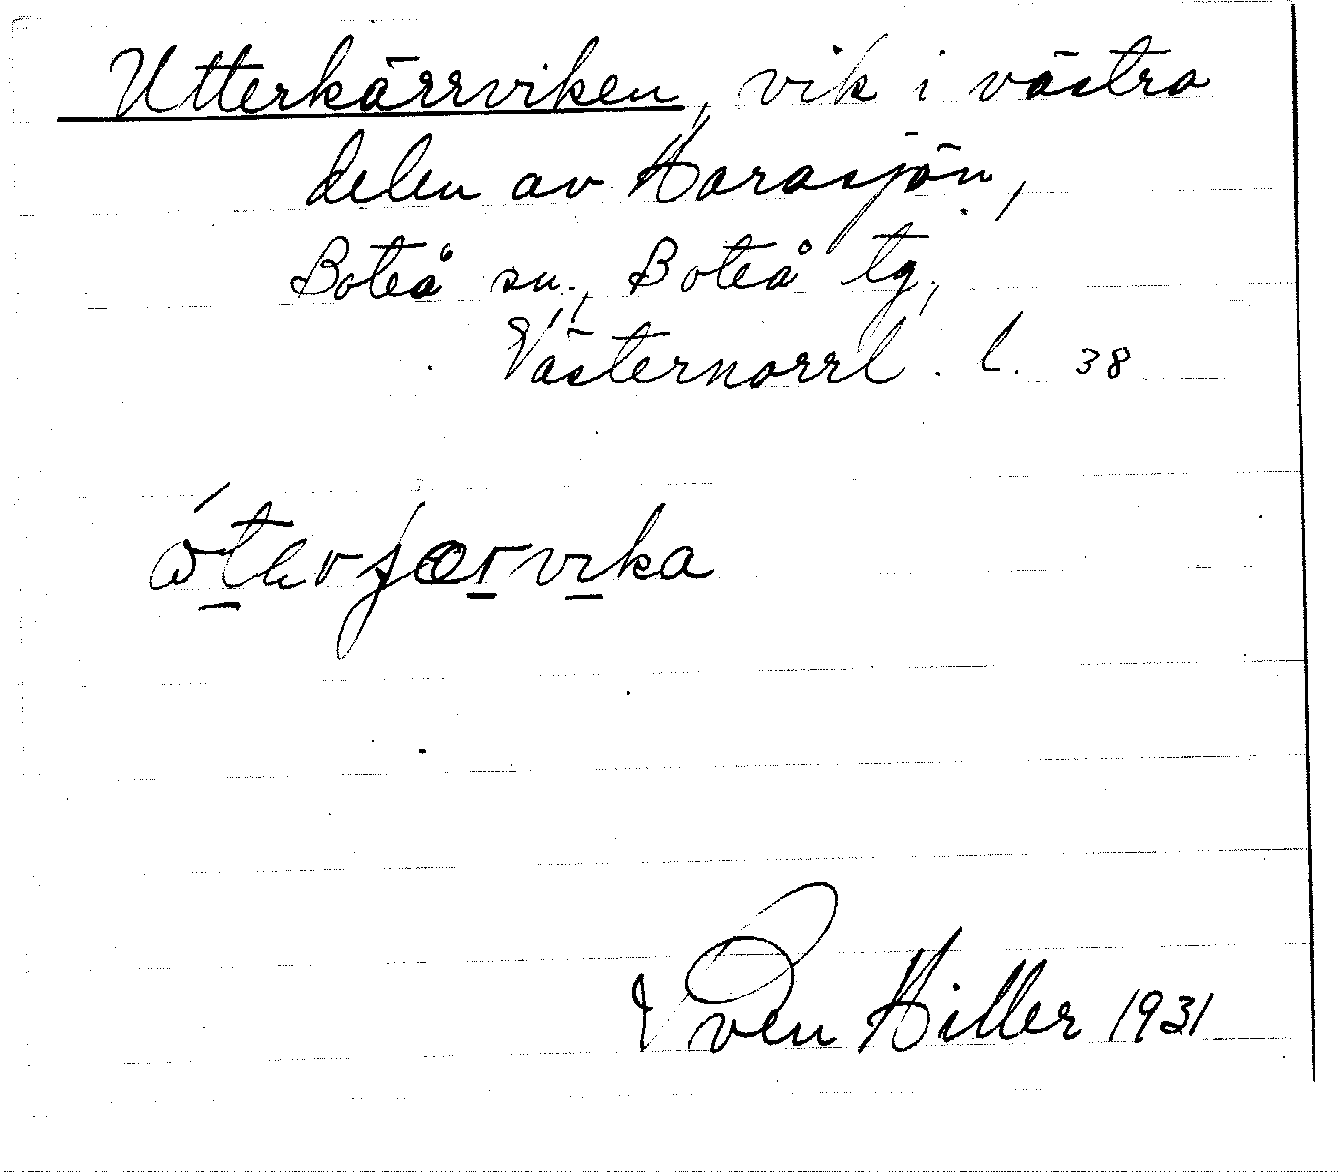 Utterkärrviken, vik i västra
delen av Harasjön,
Boteå sn., Boteå tg,
Västernorrl. l. 38
Sven Hiller 1931